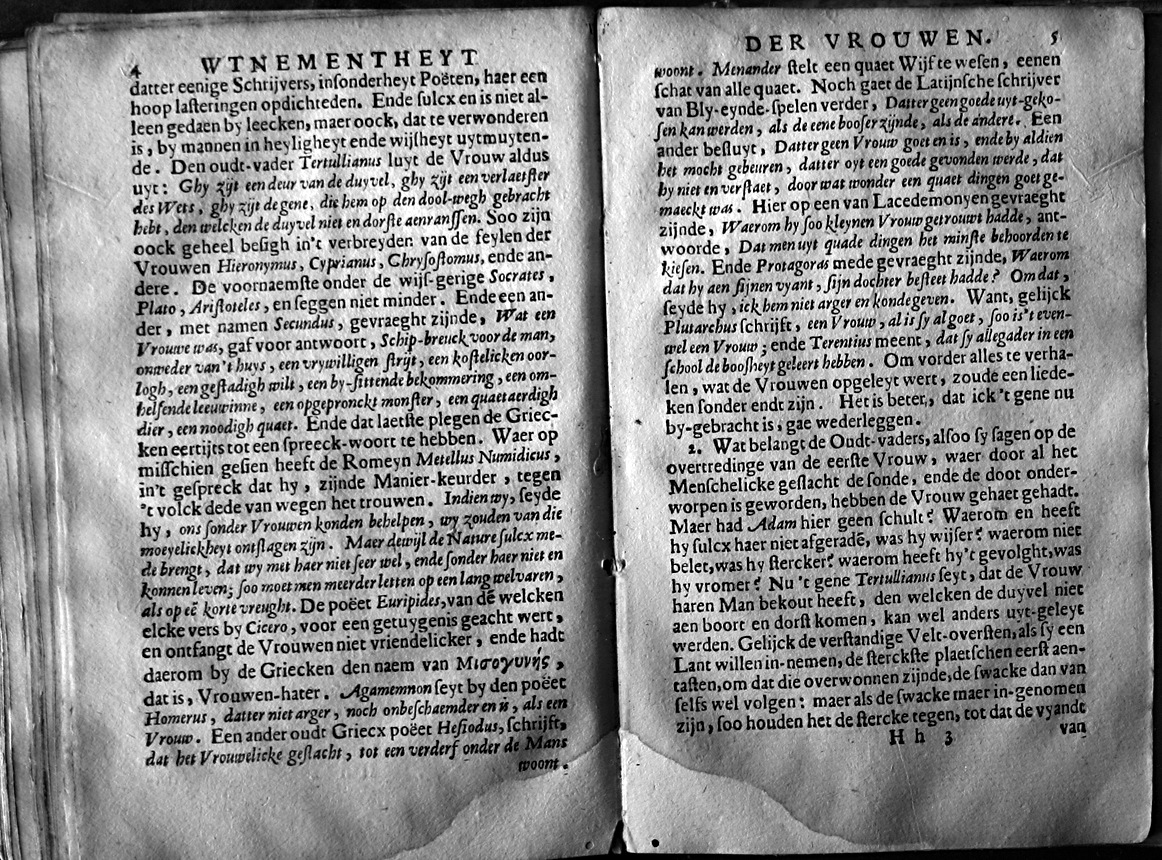 4 WTNEMENTHEYT
datter eenige Schrijvers, inſonderheyt Poëten, haer een
hoop laſteringen opdichteden. Ende ſulcx en is niet al-
leen gedaen by leecken, maer oock, dat te verwonderen
is, by mannen in heyligheyt ende wijſheyt uytmuyten-
de. Den oudt-vader Tertullianus luyt de Vrouw aldus
uyt: Ghy zijt een deur van de duyvel, ghy zijt een verlaetſter
des Wets, ghy zijt de gene, die hem op den dool-wegh gebracht
hebt, den welcken de duyvel niet en dorſte aenranſſen. Soo zijn
oock geheel beſigh in't verbreyden van de feylen der
Vrouwen Hieronymus, Cyprianus, Chryſoſtomus, ende an-
dere. De voornaemſte onder de wijſ-gerige Socrates,
Plato, Ariſtoteles, en ſeggen niet minder. Ende een an-
der, met namen Secundus, gevraeght zijnde, Wat een
Vrouwe was, gaf voor antwoort, Schip-breuck voor de man,
onweder van't huys, een vrywilligen ſtrijt, een koſtelicken oor-
logh, een geſtadigh wilt, een by-ſittende bekommering, een om-
helſende leeuwinne, een opgepronckt monſter, een quaetaerdigh
dier, een noodigh quaet. Ende dat laetſte plegen de Griec-
ken eertijts tot een ſpreeck-woort te hebben. Waer op
miſſchien geſien heeft de Romeyn Metellus Numidicus,
in't geſpreck dat hy, zijnde Manier-keurder, tegen
't volck dede van wegen het trouwen. Indien wy, ſeyde
hy, ons ſonder Vrouwen konden behelpen, wy zouden van die
moeyelickheyt ontſlagen zijn. Maer dewijl de Nature ſulcx me-
de brengt, dat wy met haer niet ſeer wel, ende ſonder haer niet en
konnen leven; ſoo moet men meerder letten op een lang welvaren,
als op eē korte vreught. De poëet Euripides, van dē welcken
elcke vers by Cicero, voor een getuygenis geacht wert,
en ontfangt de Vrouwen niet vriendelicker, ende hadt
daerom by de Griecken den naem van Μισογυνής,
dat is, Vrouwen-hater. Agamemnon ſeyt by den poëet
Homerus, datter niet arger, noch onbeſchaemder en is, als een
Vrouw. Een ander oudt Griecx poëet Heſiodus, ſchrijft,
dat het Vrouwelicke geſlacht, tot een verderf onder de Mans
woont.
DER VROUWEN. 5
woont. Menander ſtelt een quaet Wijf te weſen, eenen
ſchat van alle quaet. Noch gaet de Latijnſche ſchrijver
van Bly-eynde-ſpelen verder, Datter geen goede uyt-geko-
ſen kan werden, als de eene booſer zijnde, als de andere. Een
ander beſluyt, Datter geen Vrouw goet en is, ende by aldien
het mocht gebeuren, datter oyt een goede gevonden werde, dat
hy niet en verſtaet, door wat wonder een quaet dingen goet ge-
maeckt was. Hier op een van Lacedemonyen gevraeght
zijnde, Waerom hy ſoo kleynen Vrouw getrouwt hadde, ant-
woorde, Dat men uyt quade dingen het minſte behoorden te
kieſen. Ende Protagoras mede gevraeght zijnde, Waerom
dat hy aen ſijnen vyant, ſijn dochter beſteet hadde? Om dat,
ſeyde hy, ick hem niet arger en konde geven. Want, gelijck
Plutarchus ſchrijft, een Vrouw, al is ſy al goet, ſoo is't even-
wel een Vrouw; ende Terentius meent, dat ſy allegader in een
ſchool de booſheyt geleert hebben. Om vorder alles te verha-
len, wat de Vrouwen opgeleyt wert, zoude een liede-
ken ſonder endt zijn. Het is beter, dat ick 't gene nu
by-gebracht is, gae wederleggen.
2. Wat belangt de Oudt-vaders, alſoo ſy ſagen op de
overtredinge van de eerſte Vrouw, waer door al het
Menſchelicke geſlacht de ſonde, ende de doot onder-
worpen is geworden, hebben de Vrouw gehaet gehadt.
Maer had Adam hier geen ſchult? Waerom en heeft
hy ſulcx haer niet afgeradē, was hy wijſer? waerom niet
belet, was hy ſtercker? waerom heeft hy't gevolght, was
hy vromer? Nu 't gene Tertullianus ſeyt, dat de Vrouw
haren Man bekout heeft, den welcken de duyvel niet
aen boort en dorſt komen, kan wel anders uyt-geleyt
werden. Gelijck de verſtandige Velt-overſten, als ſy een
Lant willen in-nemen, de ſterckſte plaetſchen eerſt aen-
taſten, om dat die overwonnen zijnde, de ſwacke dan van
ſelfs wel volgen: maer als de ſwacke maer in-genomen
zijn, ſoo houden het de ſtercke tegen, tot dat de vyandt
H h 3 van